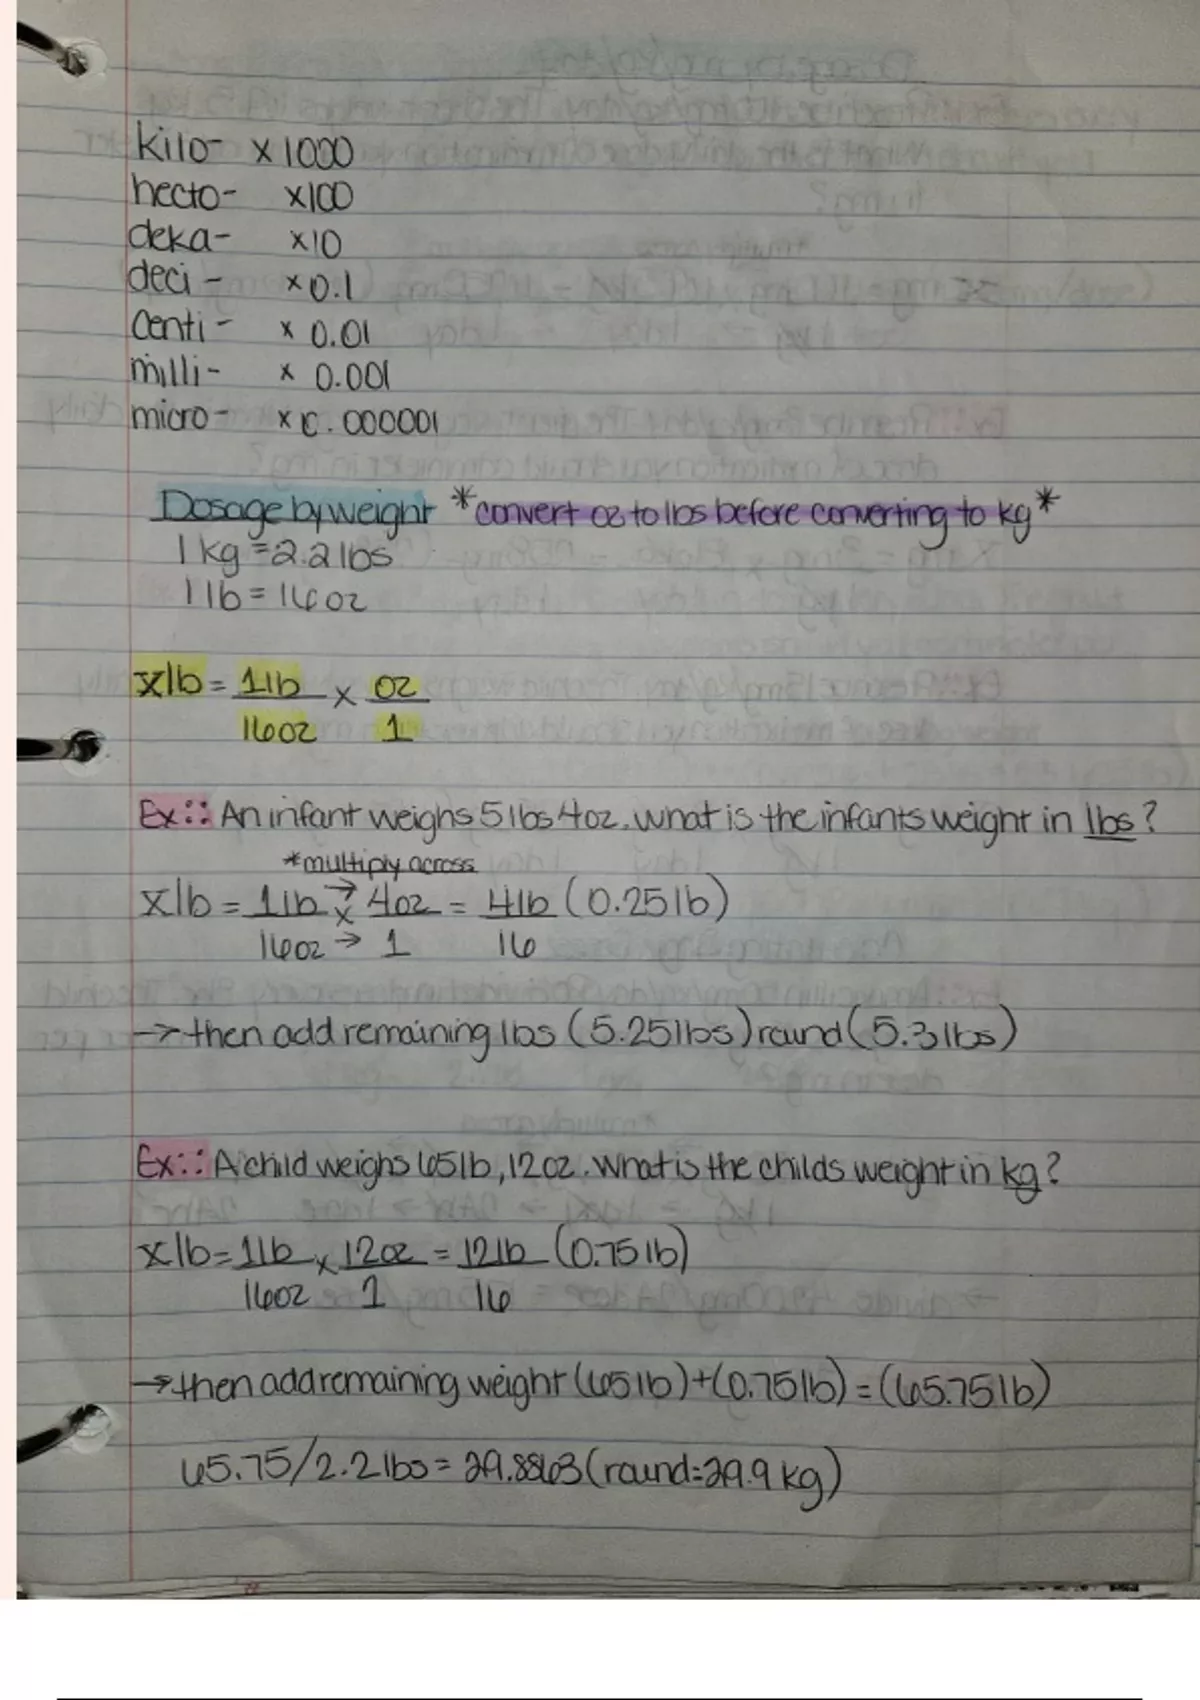 kilo- x 1000
hecto- x100
deka- x10
deci- x0.1
centi- x 0.01
milli- x 0.001
micro- x 0.000001
Dosage by weight *convert oz to lbs before converting to kg*
1 kg = 2.2 lbs
1 lb = 16 oz
x lb = 1 lb x oz
16 oz 1
Ex:: An infant weighs 5 lbs 4 oz. What is the infants weight in lbs?
*multiply across
x lb = 1 lb → x 4 oz = 4 lb (0.25 lb)
16 oz → 1 16
→ then add remaining lbs (5.25 lbs) round (5.3 lbs)
Ex:: A child weighs 65 lb, 12 oz. What is the childs weight in kg?
x lb = 1 lb x 12 oz = 12 lb (0.75 lb)
16 oz 1 16
→ then add remaining weight (65 lb) + (0.75 lb) = (65.75 lb)
65.75/2.2 lbs = 29.8863 (round = 29.9 kg)